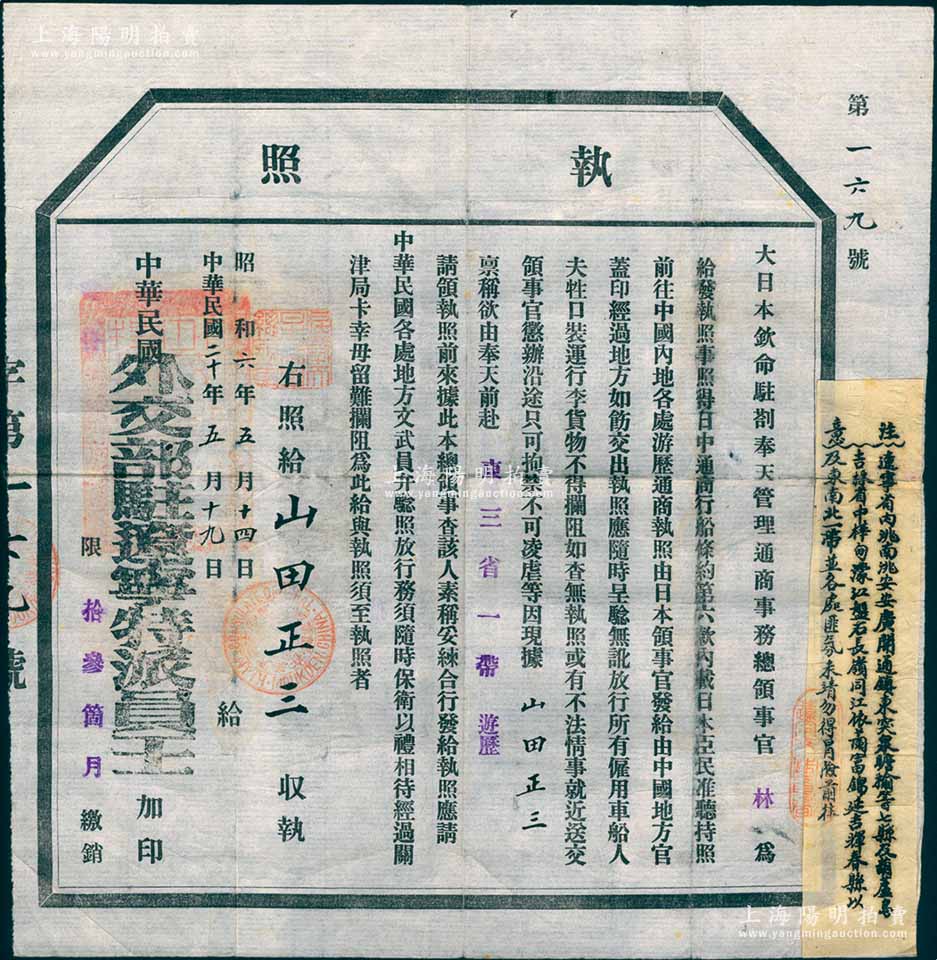 上海陽明拍賣
www.yangmingauction.com
第一六九號
執照
大日本欽命駐劄奉天管理通商事務總領事官 林 為
給發執照事照得日中通商行船條約第六款內載日本臣民准聽持照
前往中國內地各處游歷通商執照由日本領事官發給由中國地方官
蓋印經過地方如飭交出執照應隨時呈驗無訛放行所有僱用車船人
夫牲口裝運行李貨物不得攔阻如查無執照或有不法情事就近送交
領事官懲辦沿途只可拘禁不可凌虐等因現據 山田正三
稟稱欲由奉天前赴 東三省一帶 遊歷
請領執照前來據此本總領事查該人素稱妥練合行發給執照應請
中華民國各處地方文武員弁驗照放行務須隨時保衛以禮相待經過關
津局卡幸毋留難攔阻為此給與執照須至執照者
右照給 山田正三 收執
昭和六年五月十四日
中華民國二十年五月十九日 給
中華民國外交部駐遼寧特派員王 加印
限 拾參箇月 繳銷
字第一六九號
注意
遼寧省內洮南洮安安廣開通鎮東突泉瞻榆等七縣及葫蘆島
吉林省中樺甸濛江盤石長嶺同江依蘭富錦延吉琿春縣以
及東南北一帶並各處匪氛未靖勿得冒險前往
上海陽明拍賣
www.yangmingauction.com
上海陽明拍賣
www.yangmingauction.com